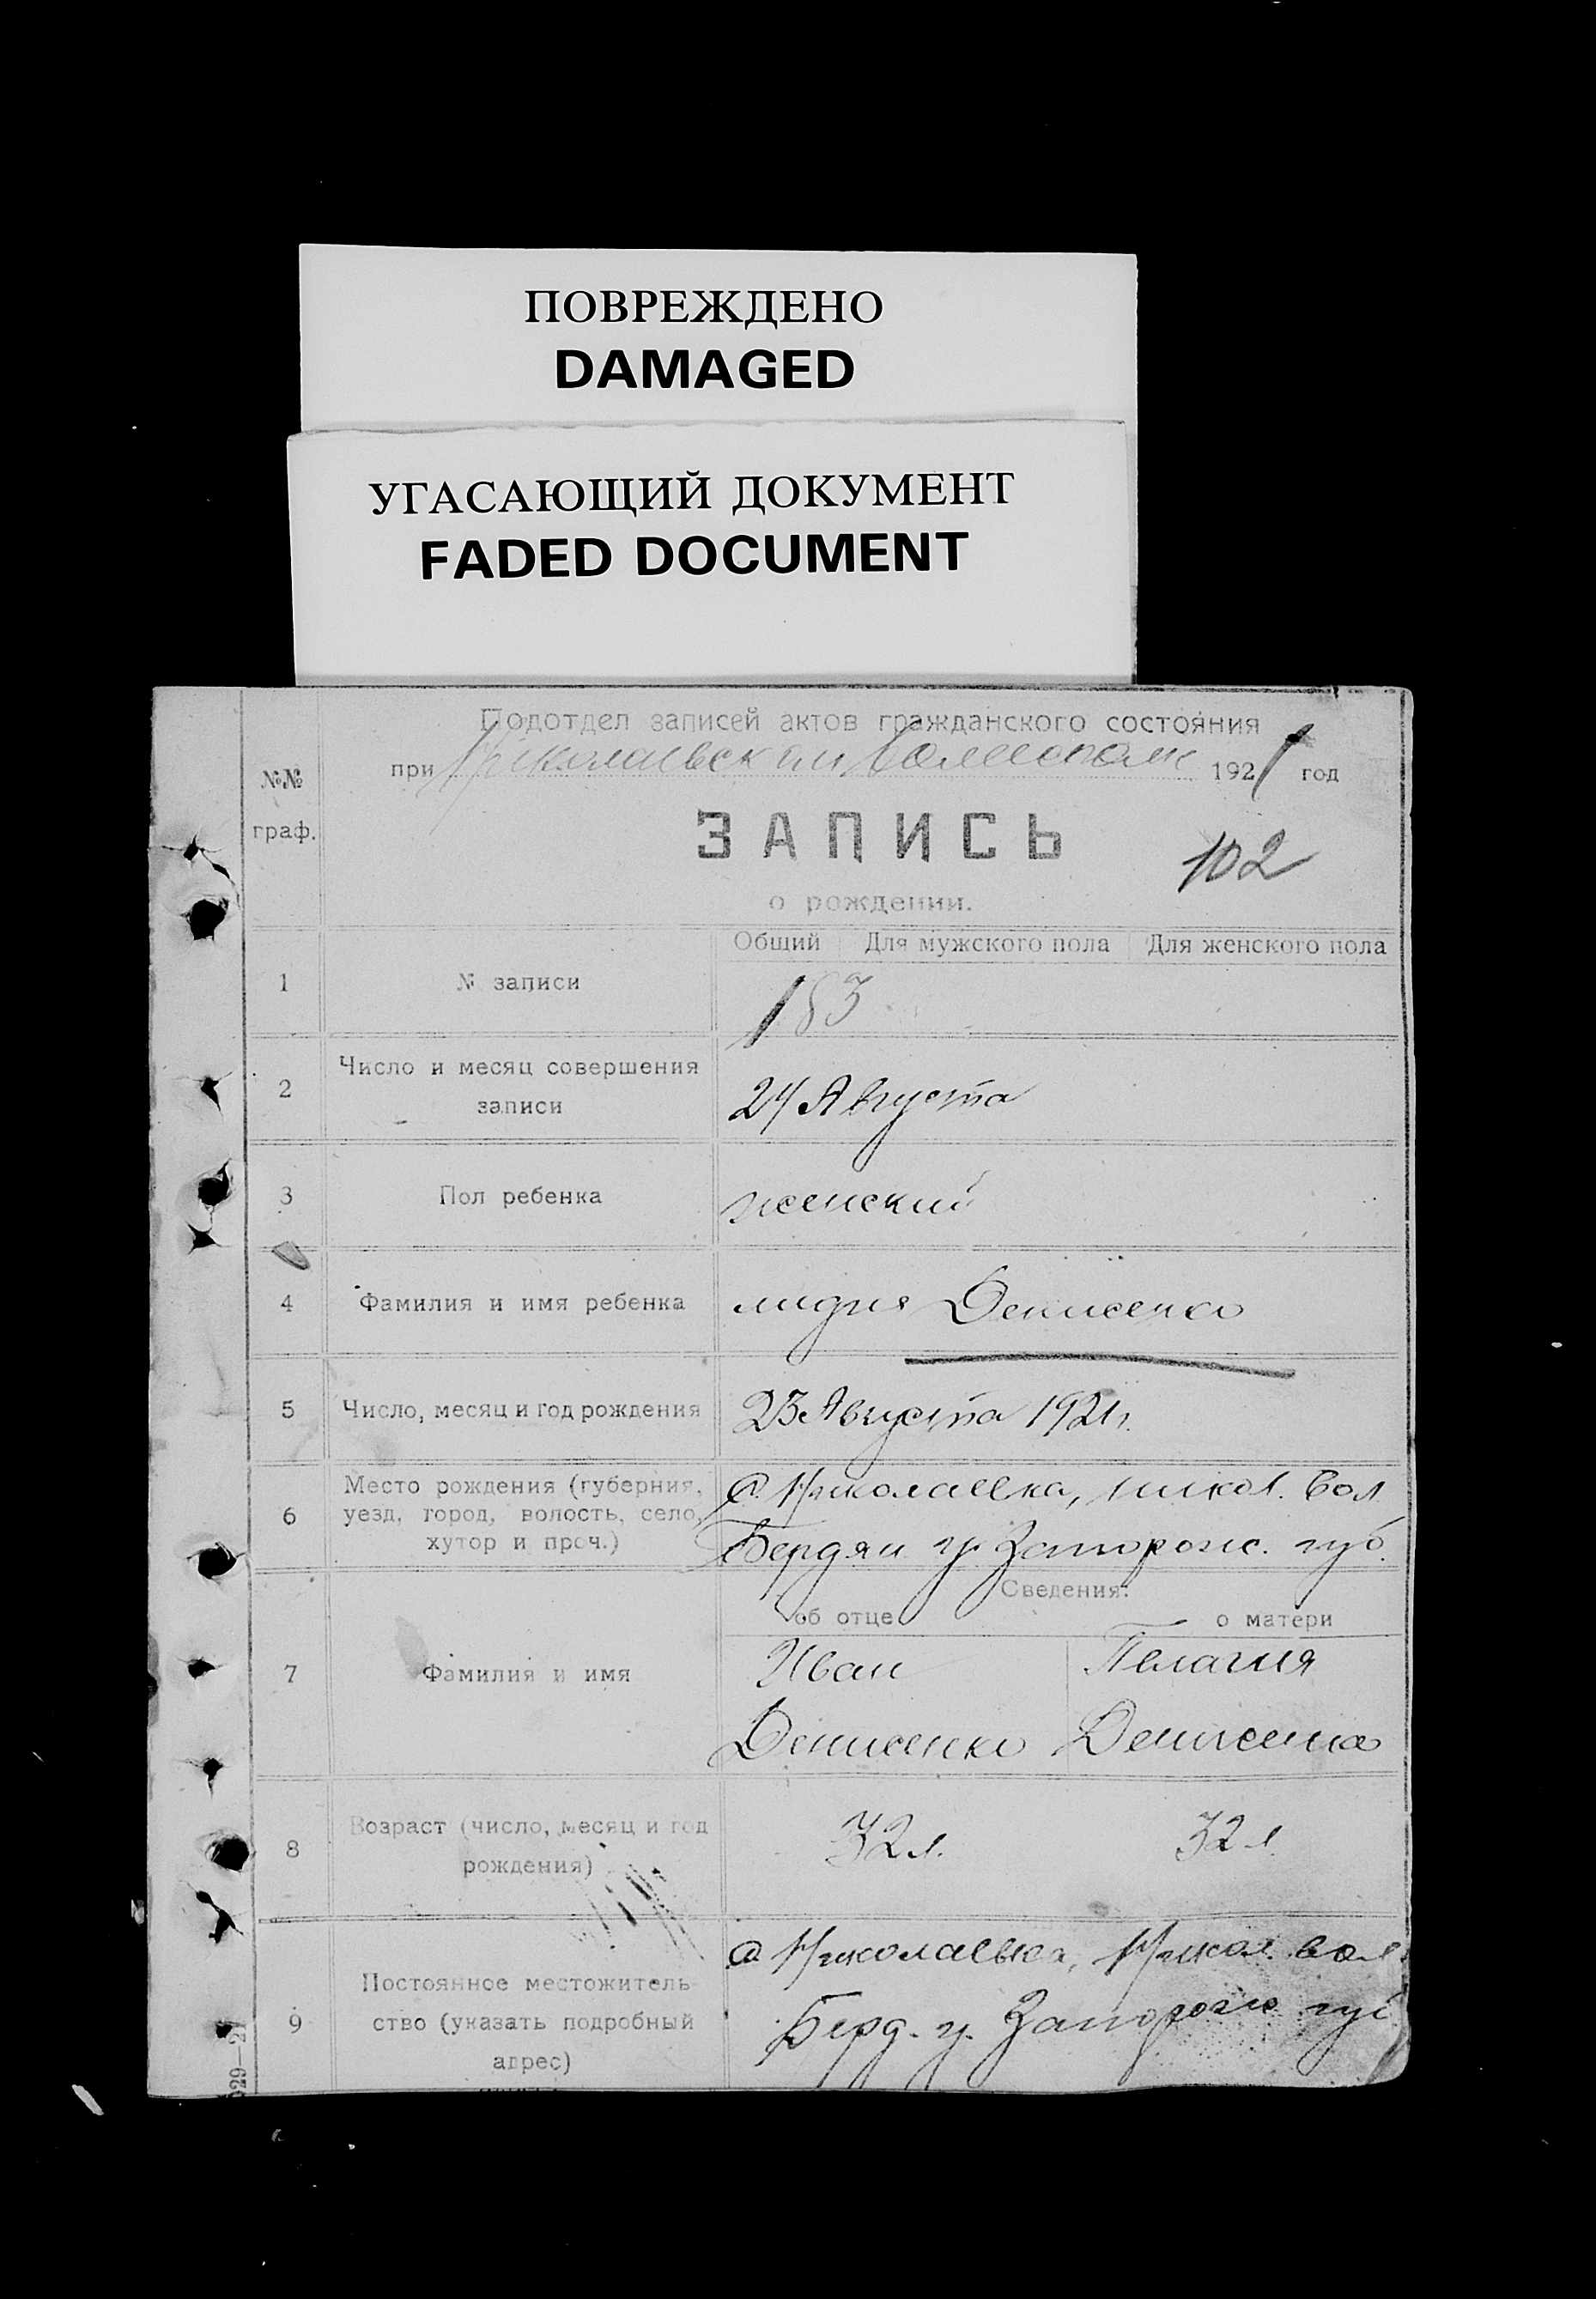 ПОВРЕЖДЕНО
DAMAGED
УГАСАЮЩИЙ ДОКУМЕНТ
FADED DOCUMENT
Подотдел записей актов гражданского состояния
при Николаевском 1921 год
№№ граф.
ЗАПИСЬ
102
о рождении.
Общий Для мужского пола Для женского пола
1 № записи 183
2 Число и месяц совершения записи 24 Августа
3 Пол ребенка женский
4 Фамилия и имя ребенка лидия Денисенко
5 Число, месяц и год рождения 23 Августа 1921 г.
6 Место рождения (губерния, уезд, город, волость, село, хутор и проч.) с. Николаевка, никол. вол
Бердян у. Запорож. губ.
Сведения:
об отце о матери
7 Фамилия и имя Иван Пелагия
Денисенко Денисенко
8 Возраст (число, месяц и год рождения) 32 л. 32 л
9 Постоянное местожительство (указать подробный адрес) с. Николаевка, Никол. вол.
Берд. у. Запорож губ